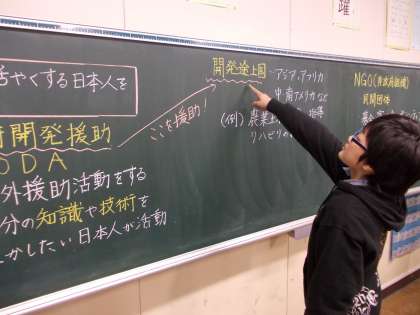 躍
活やくする日本人を
府開発援助
ODA
海外援助活動をする
自分の知識や技術を
生かしたい日本人が活動
ここを援助!
開発途上国
アジア・アフリカ
中・南アメリカ など
(例) 農業
指導
リハビリの
NGO(非政府組織)
民間団体